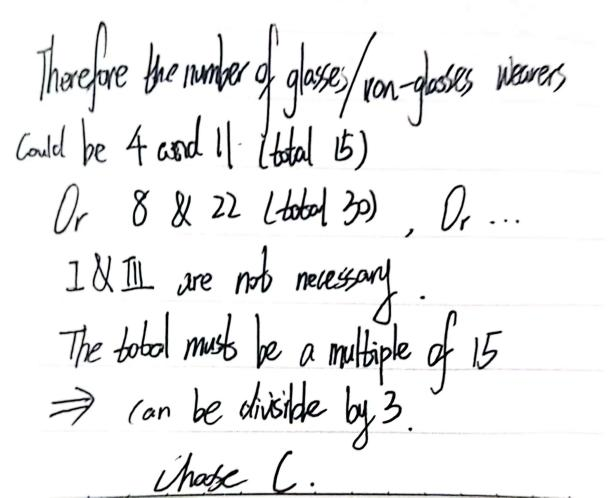 Therefore the number of glasses/non-glasses wearers
Could be 4 and 11. (total 15)
Or 8 & 22 (total 30), Or ...
I & III are not necessary.
The total must be a multiple of 15
⇒ can be divisible by 3.
Choose C.